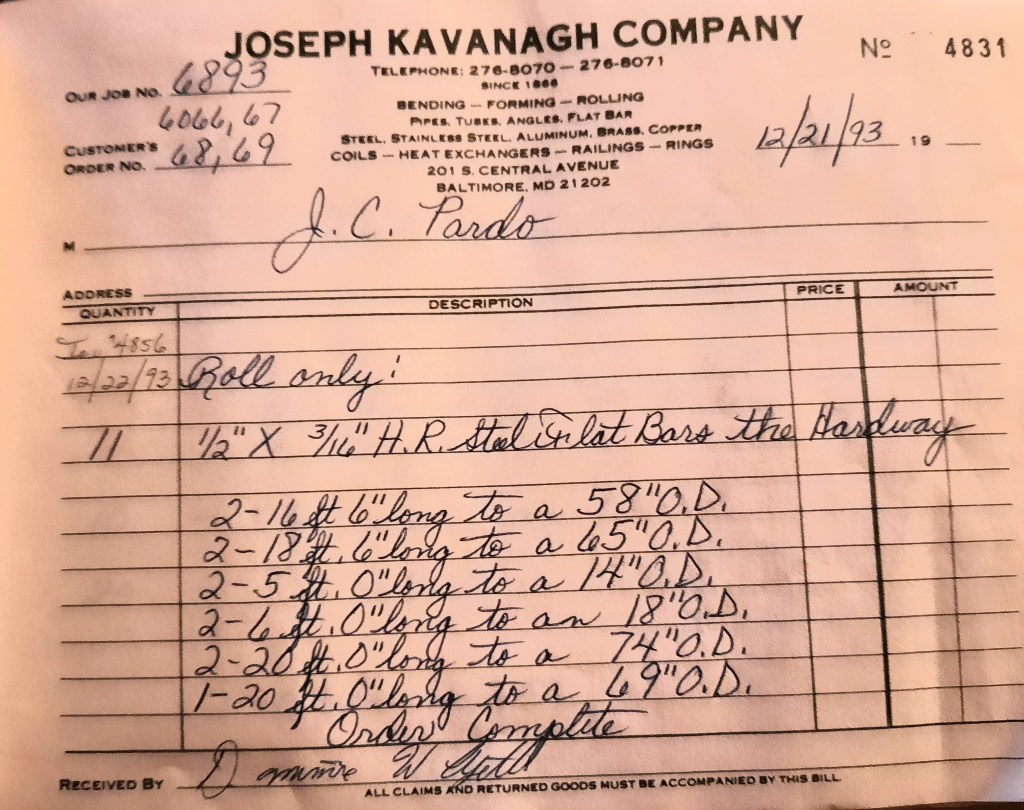 JOSEPH KAVANAGH COMPANY
Nº 4831
TELEPHONE: 276-8070 — 276-8071
SINCE 1866
OUR JOB NO. 6893
BENDING — FORMING — ROLLING
PIPES, TUBES, ANGLES, FLAT BAR
6066, 67
STEEL, STAINLESS STEEL, ALUMINUM, BRASS, COPPER
CUSTOMER'S ORDER NO. 68, 69
COILS — HEAT EXCHANGERS — RAILINGS — RINGS
12/21/93 19
201 S. CENTRAL AVENUE
BALTIMORE, MD 21202
M J. C. Pardo
ADDRESS
QUANTITY DESCRIPTION PRICE AMOUNT
#4856
12/22/93 Roll only:
11 1/2" X 3/16" H.R. Steel Flat Bars the Hardway
2-16 ft 6" long to a 58" O.D.
2-18 ft. 6" long to a 65" O.D.
2-5 ft. 0" long to a 14" O.D.
2-6 ft. 0" long to an 18" O.D.
2-20 ft. 0" long to a 74" O.D.
1-20 ft. 0" long to a 69" O.D.
Order Complete
RECEIVED BY
ALL CLAIMS AND RETURNED GOODS MUST BE ACCOMPANIED BY THIS BILL